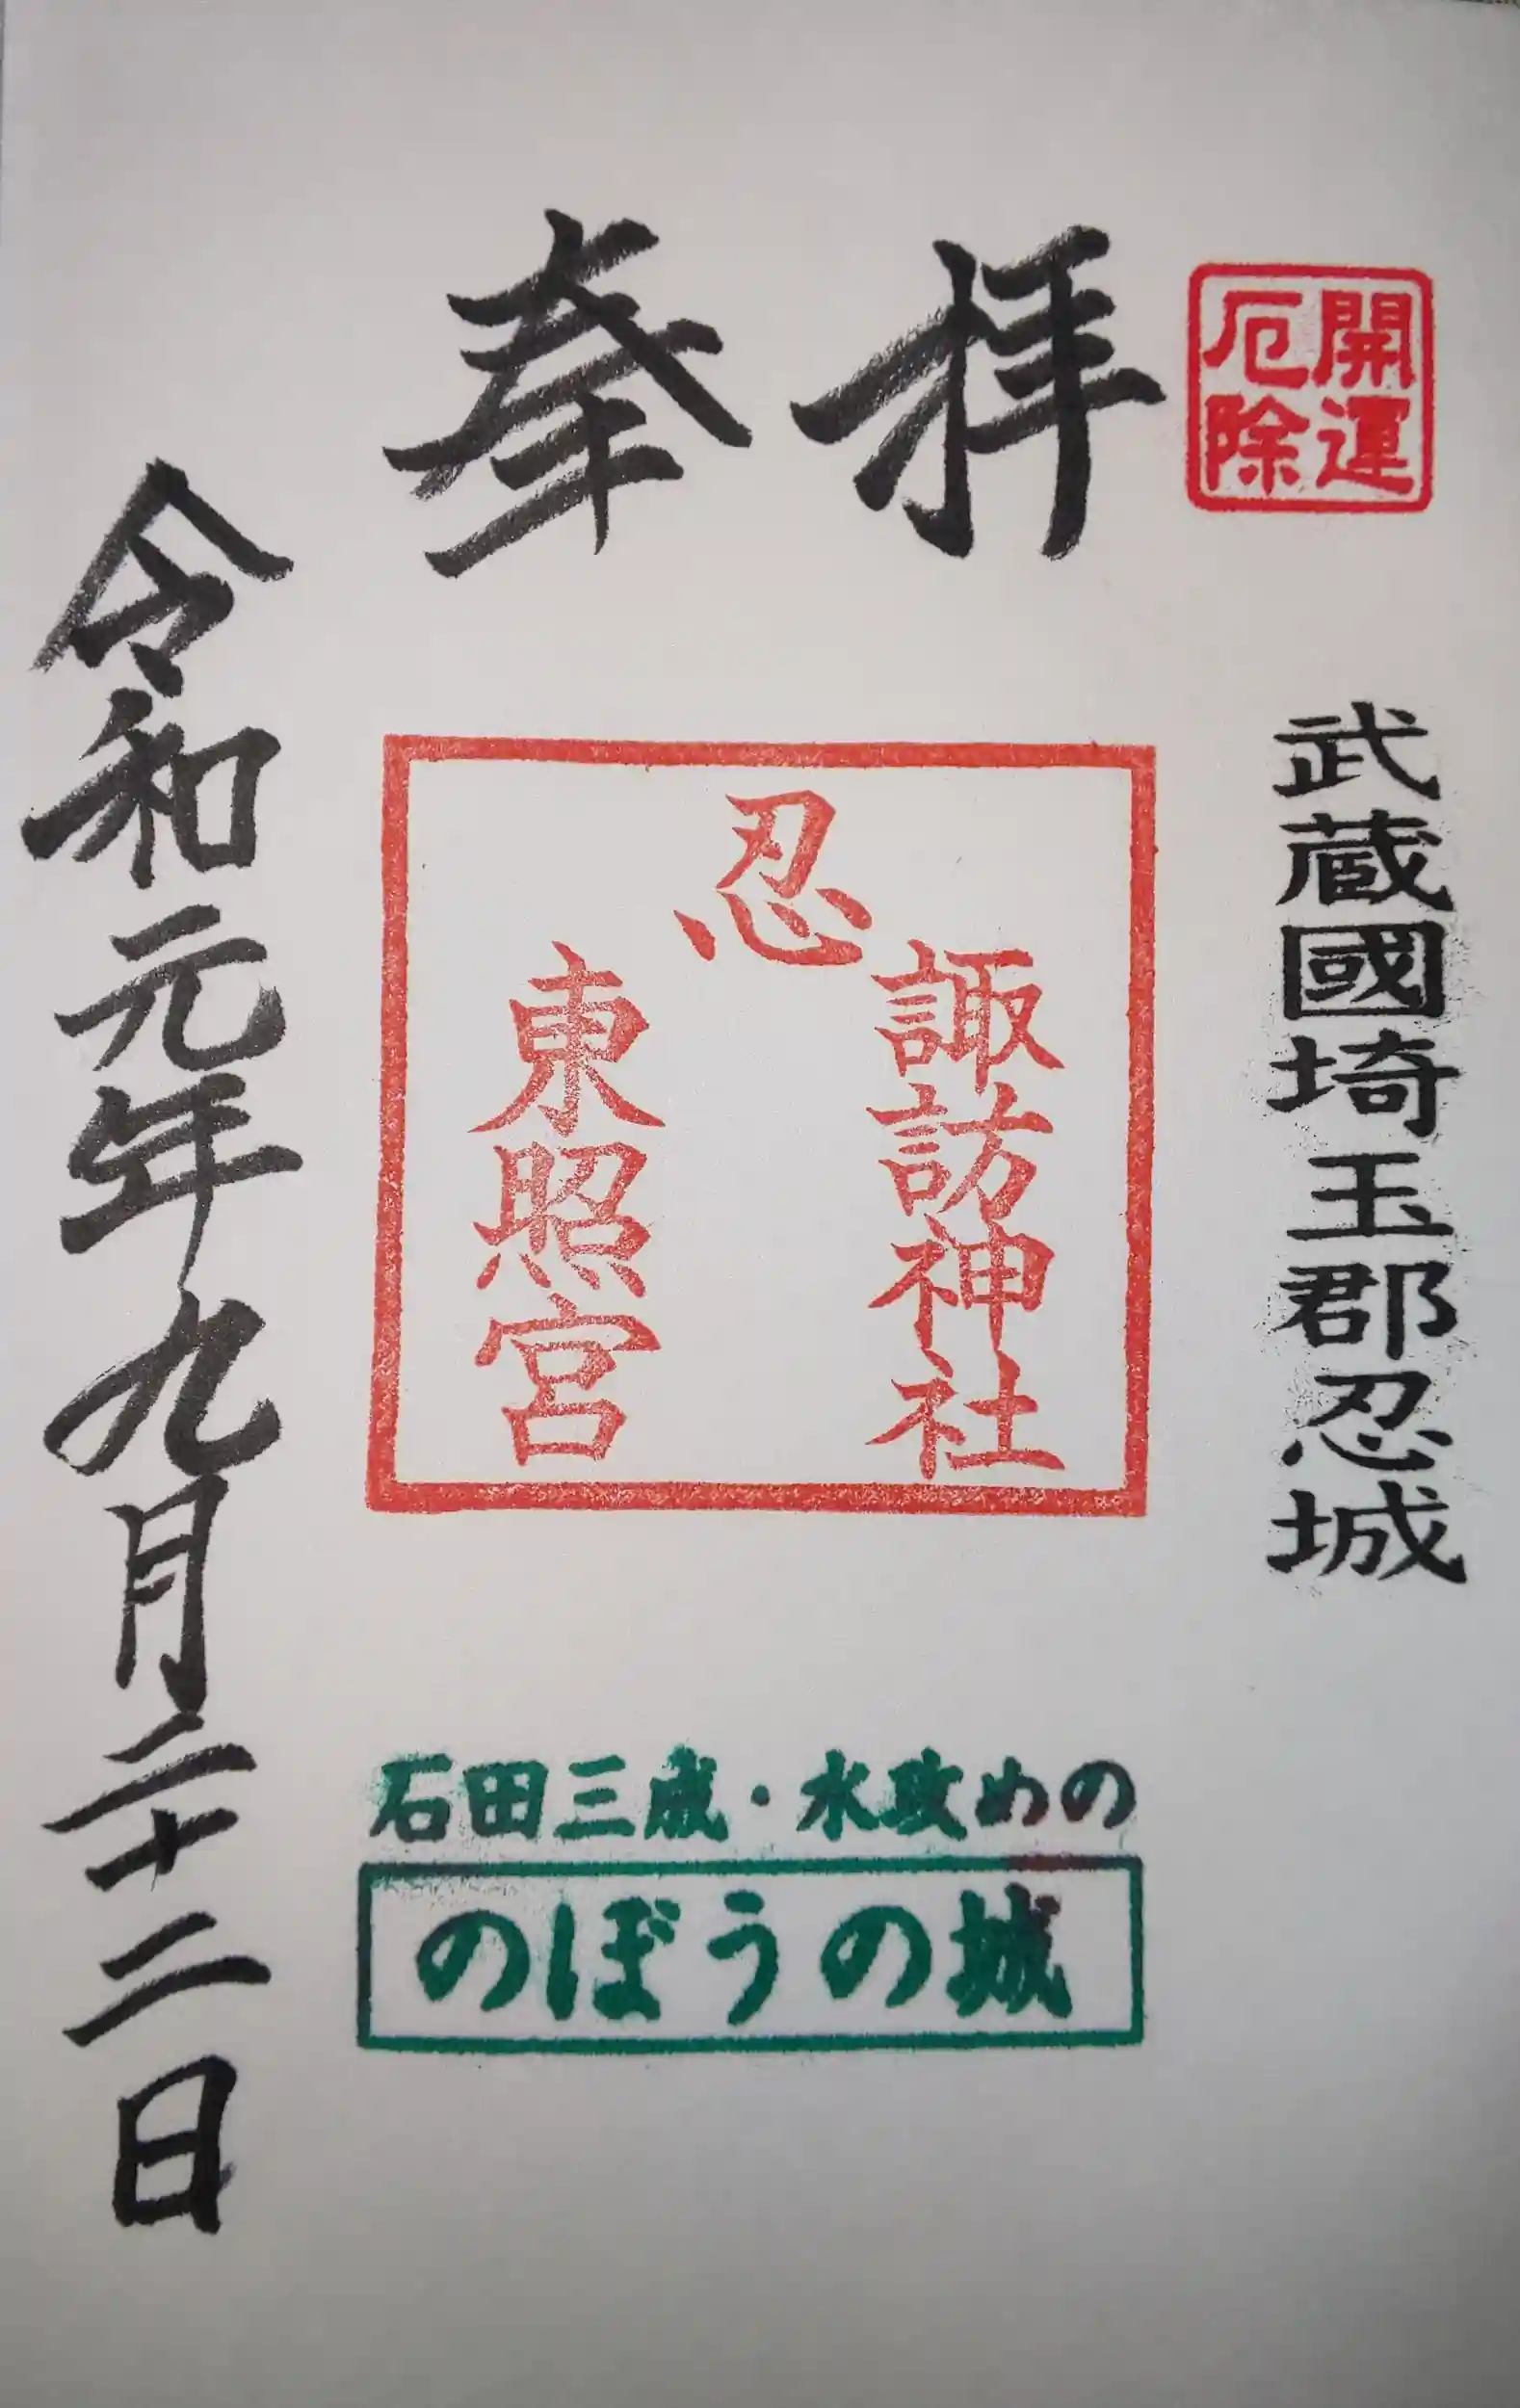 開運
厄除
拝
奉
武蔵國埼玉郡忍城
忍
諏訪神社
東照宮
石田三成・水攻めの
のぼうの城
令和元年九月二十二日